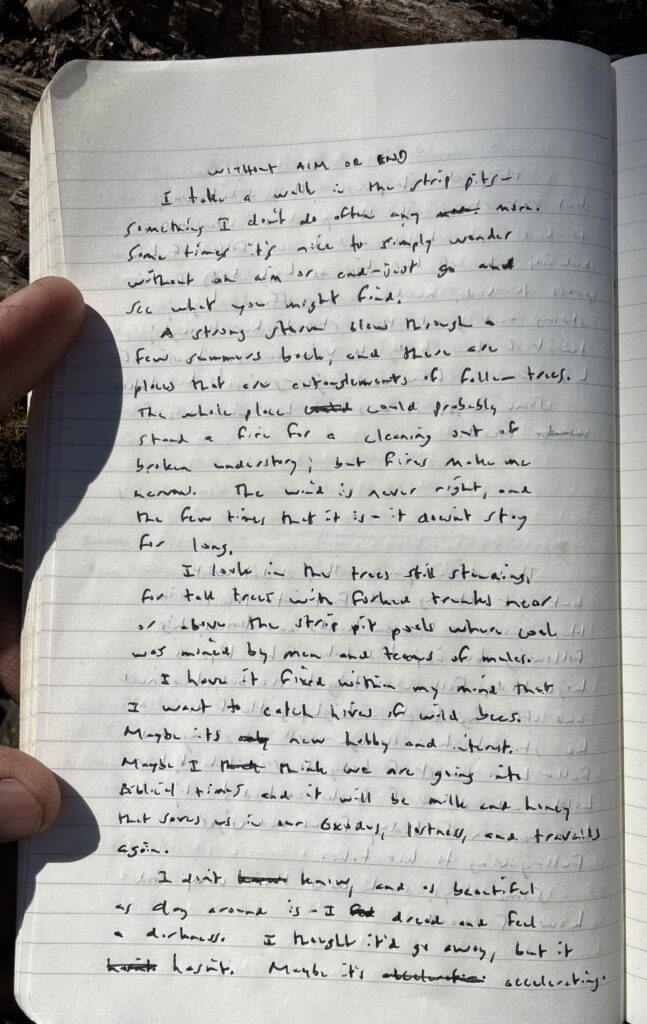 WITHOUT AIM OR END
I take a walk in the strip pits -
something I don't do often any more.
Some times it's nice to simply wander
without an aim or end - just go and
see what you might find.
A strong storm blew through a
few summers back, and there are
places that are entanglements of fallen trees.
The whole place could probably
stand a fire for a cleaning out of
broken understory; but fires make me
nervous. The wind is never right, and
the few times that it is - it doesnt stay
for long.
I look in the trees still standing,
for tall trees with forked trunks near
or above the strip pit pools where coal
was mined by men and teams of mules.
I have it fixed within my mind that
I want to catch hives of wild bees.
Maybe its new hobby and interest.
Maybe I think we are going into
Biblical times and it will be milk and honey
that saves us in our Exodus, lostness, and travails
again.
I don't know, and as beautiful
as day around is - I dread and feel
a darkness. I thought it'd go away, but it
hasn't. Maybe it's accelerating.